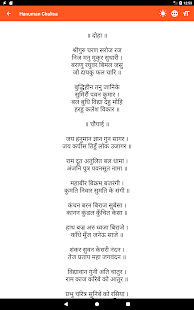 12:53
Hanuman Chalisa
॥ दोहा ॥
श्रीगुरु चरन सरोज रज
निज मनु मुकुर सुधारी ।
बरनउँ रघुबर बिमल जसु
जो दायकु फल चारि ॥
बुद्धिहीन तनु जानिके
सुमिरौं पवन कुमार ।
बल बुधि विद्या देहु मोहि
हरहु कलेश विकार ॥
॥ चौपाई ॥
जय हनुमान ज्ञान गुन सागर ।
जय कपीस तिहुँ लोक उजागर ॥
राम दूत अतुलित बल धामा ।
अंजनि पुत्र पवनसुत नामा ॥
महाबीर बिक्रम बजरंगी ।
कुमति निवार सुमति के संगी ॥
कंचन बरन बिराज सुबेसा ।
कानन कुंडल कुँचित केसा ॥
हाथ बज्र अरु ध्वजा बिराजे ।
काँधे मूँज जनेऊ साजे ॥
शंकर सुवन केसरी नंदन ।
तेज प्रताप महा जगवंदन ॥
विद्यावान गुनी अति चातुर ।
राम काज करिबे को आतुर ॥
प्रभु चरित्र सुनिबे को रसिया ।